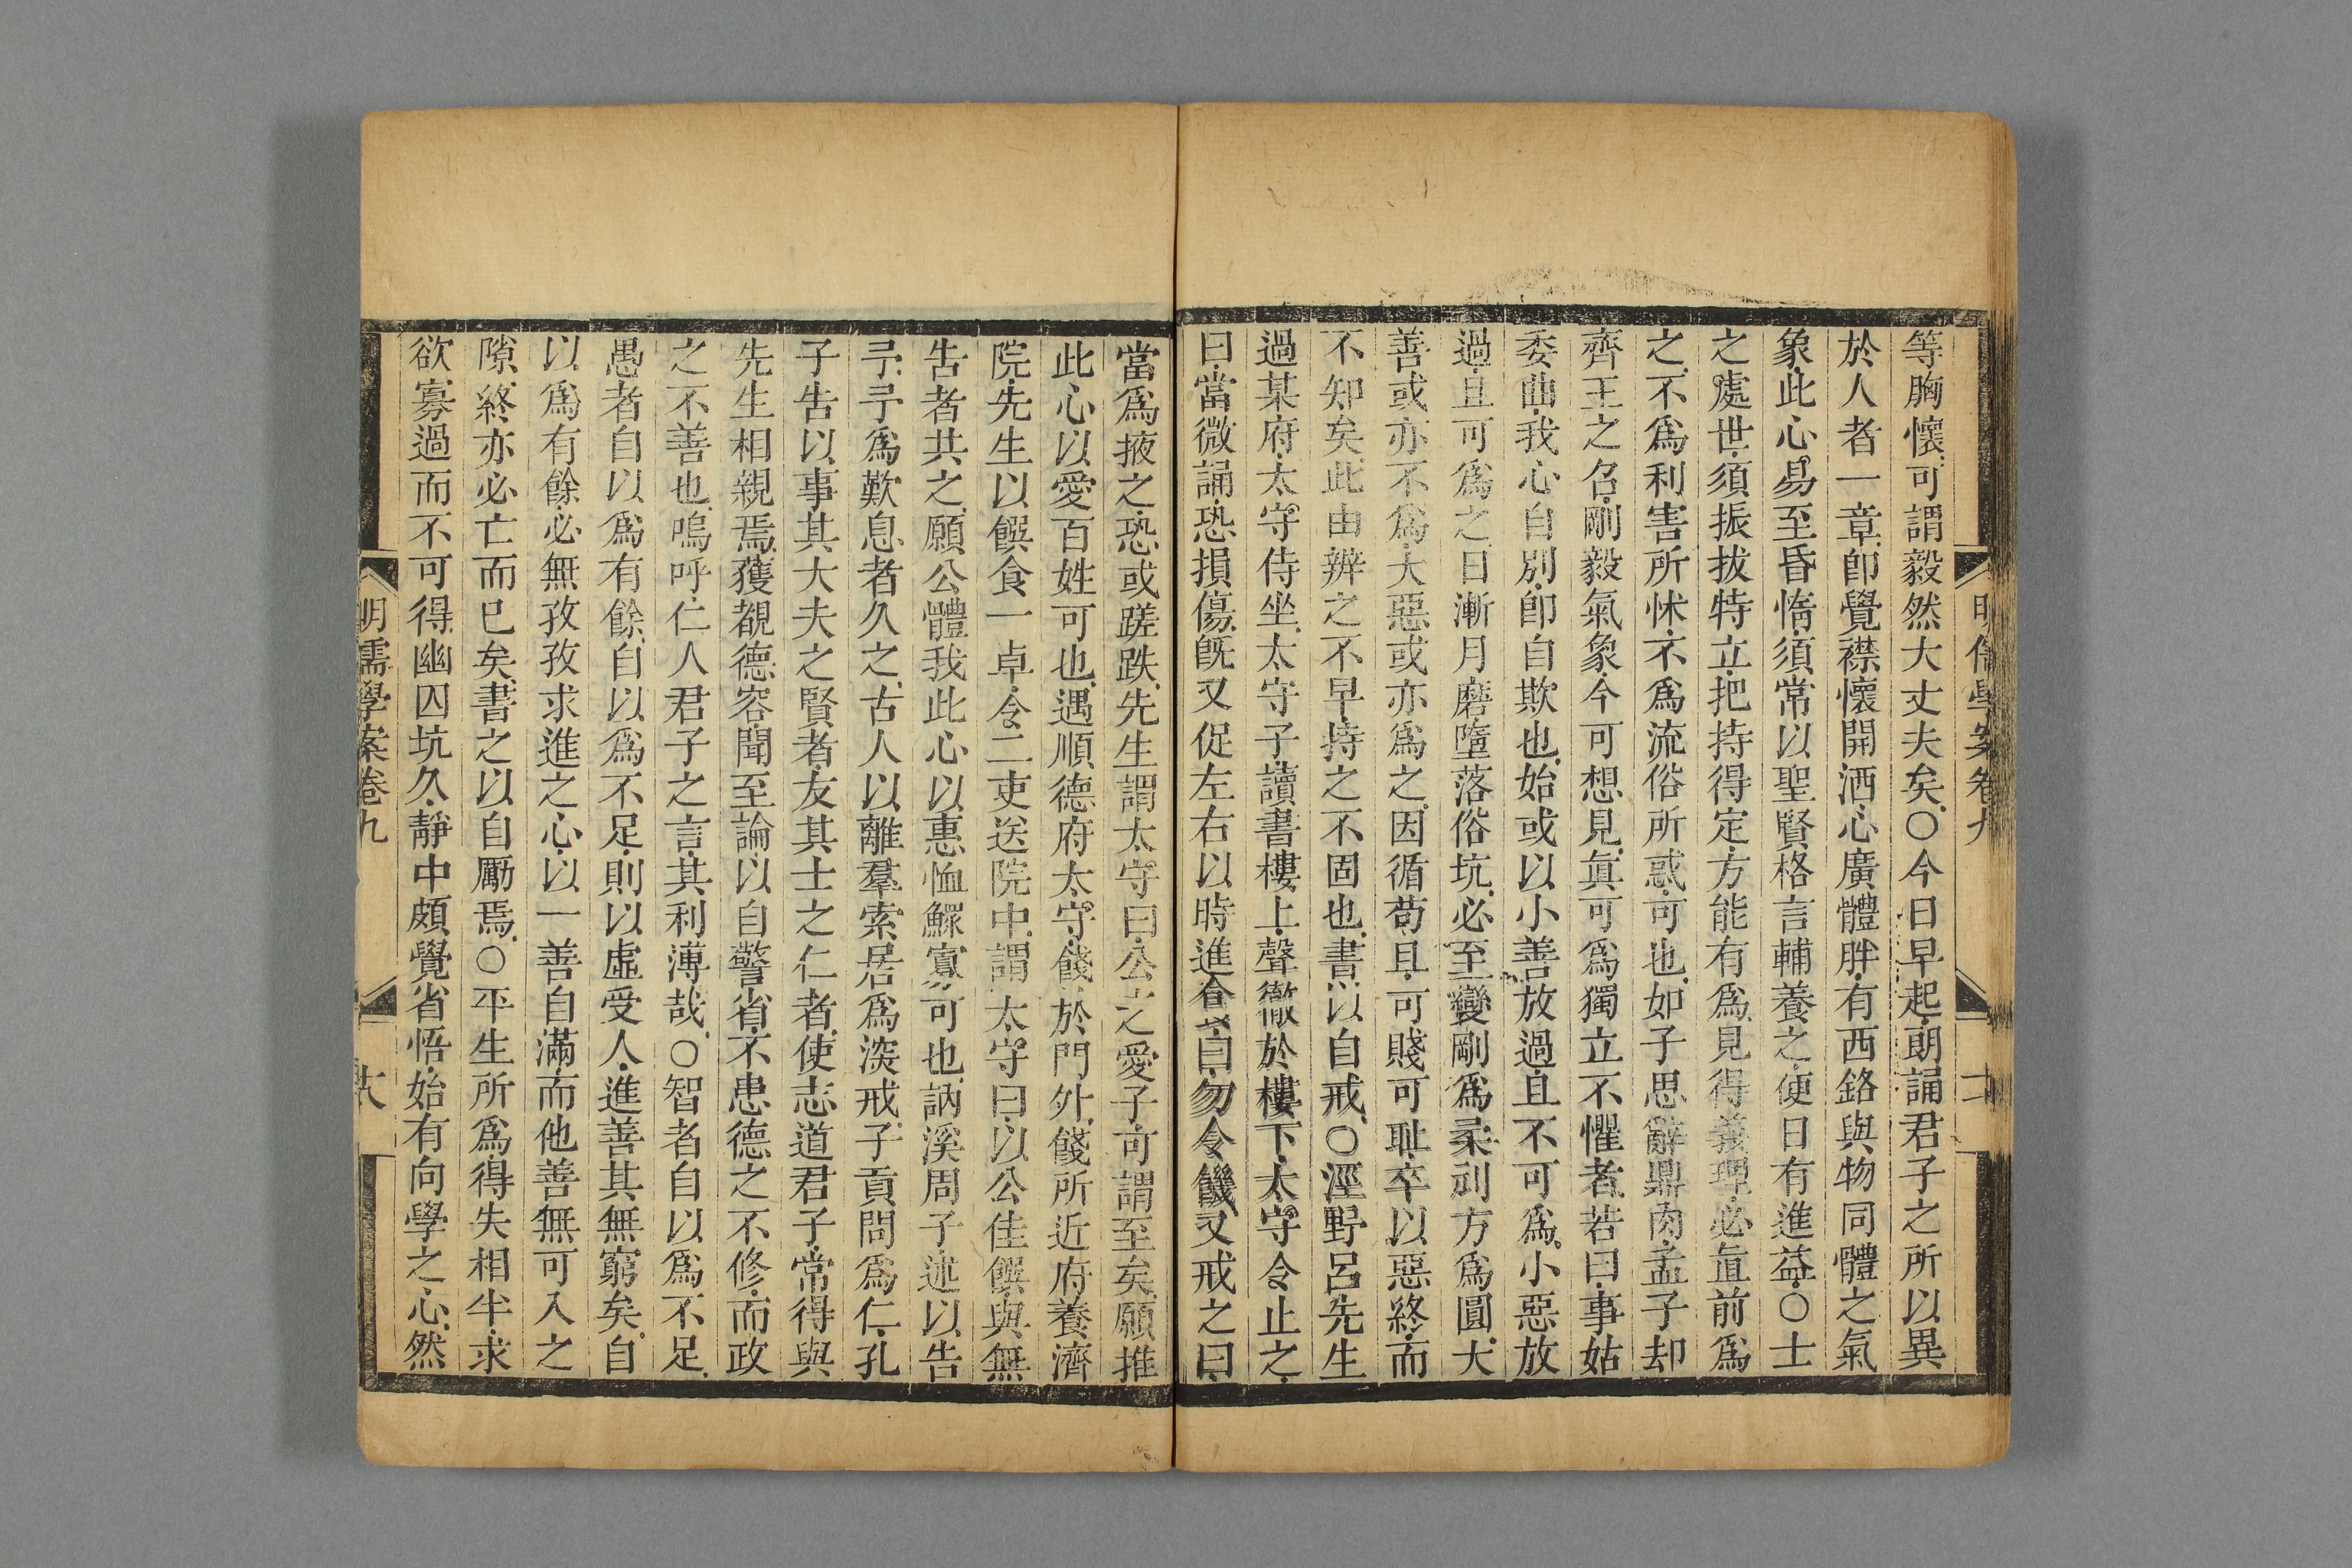 等胸懷可謂毅然大丈夫矣○今日早起朗誦君子之所以異
於人者一章卽覺襟懷開洒心廣體胖有西銘與物同體之氣
象此心易至昏惰須常以聖賢格言輔養之便日有進益○士
之處世須振拔特立把持得定方能有爲見得義理必直前爲
之不爲利害所怵不爲流俗所惑可也如子思辭鼎肉孟子却
齊王之召剛毅氣象今可想見眞可爲獨立不懼者若曰事姑
委曲我心自別卽自欺也始或以小善放過且不可爲小惡放
過且可爲之日漸月磨墮落俗坑必至變剛爲柔刓方爲圓大
善或亦不爲大惡或亦爲之因循苟且可賤可耻卒以惡終而
不知矣此由辨之不早持之不固也書以自戒○涇野呂先生
過某府太守侍坐太守子讀書樓上聲徹於樓下太守令止之
曰當微誦恐損傷旣又促左右以時進食曰勿令饑又戒之曰
當爲掖之恐或蹉跌先生謂太守曰公之愛子可謂至矣願推
此心以愛百姓可也遇順德府太守餞於門外餞所近府養濟
院先生以饌食一卓令二吏送院中謂太守曰以公佳饌與無
告者共之願公體我此心以惠恤鰥寡可也訥溪周子述以告
予予爲歎息者久之古人以離羣索居爲深戒子貢問爲仁孔
子告以事其大夫之賢者友其士之仁者使志道君子常得與
先生相親焉獲覩德容聞至論以自警省不患德之不修而政
之不善也嗚呼仁人君子之言其利溥哉○智者自以爲不足
愚者自以爲有餘自以爲不足則以虛受人進善其無窮矣自
以爲有餘必無孜孜求進之心以一善自滿而他善無可入之
隙終亦必亡而已矣書之以自勵焉○平生所爲得失相半求
欲寡過而不可得幽囚坑久靜中頗覺省悟始有向學之心然
明儒學案卷九